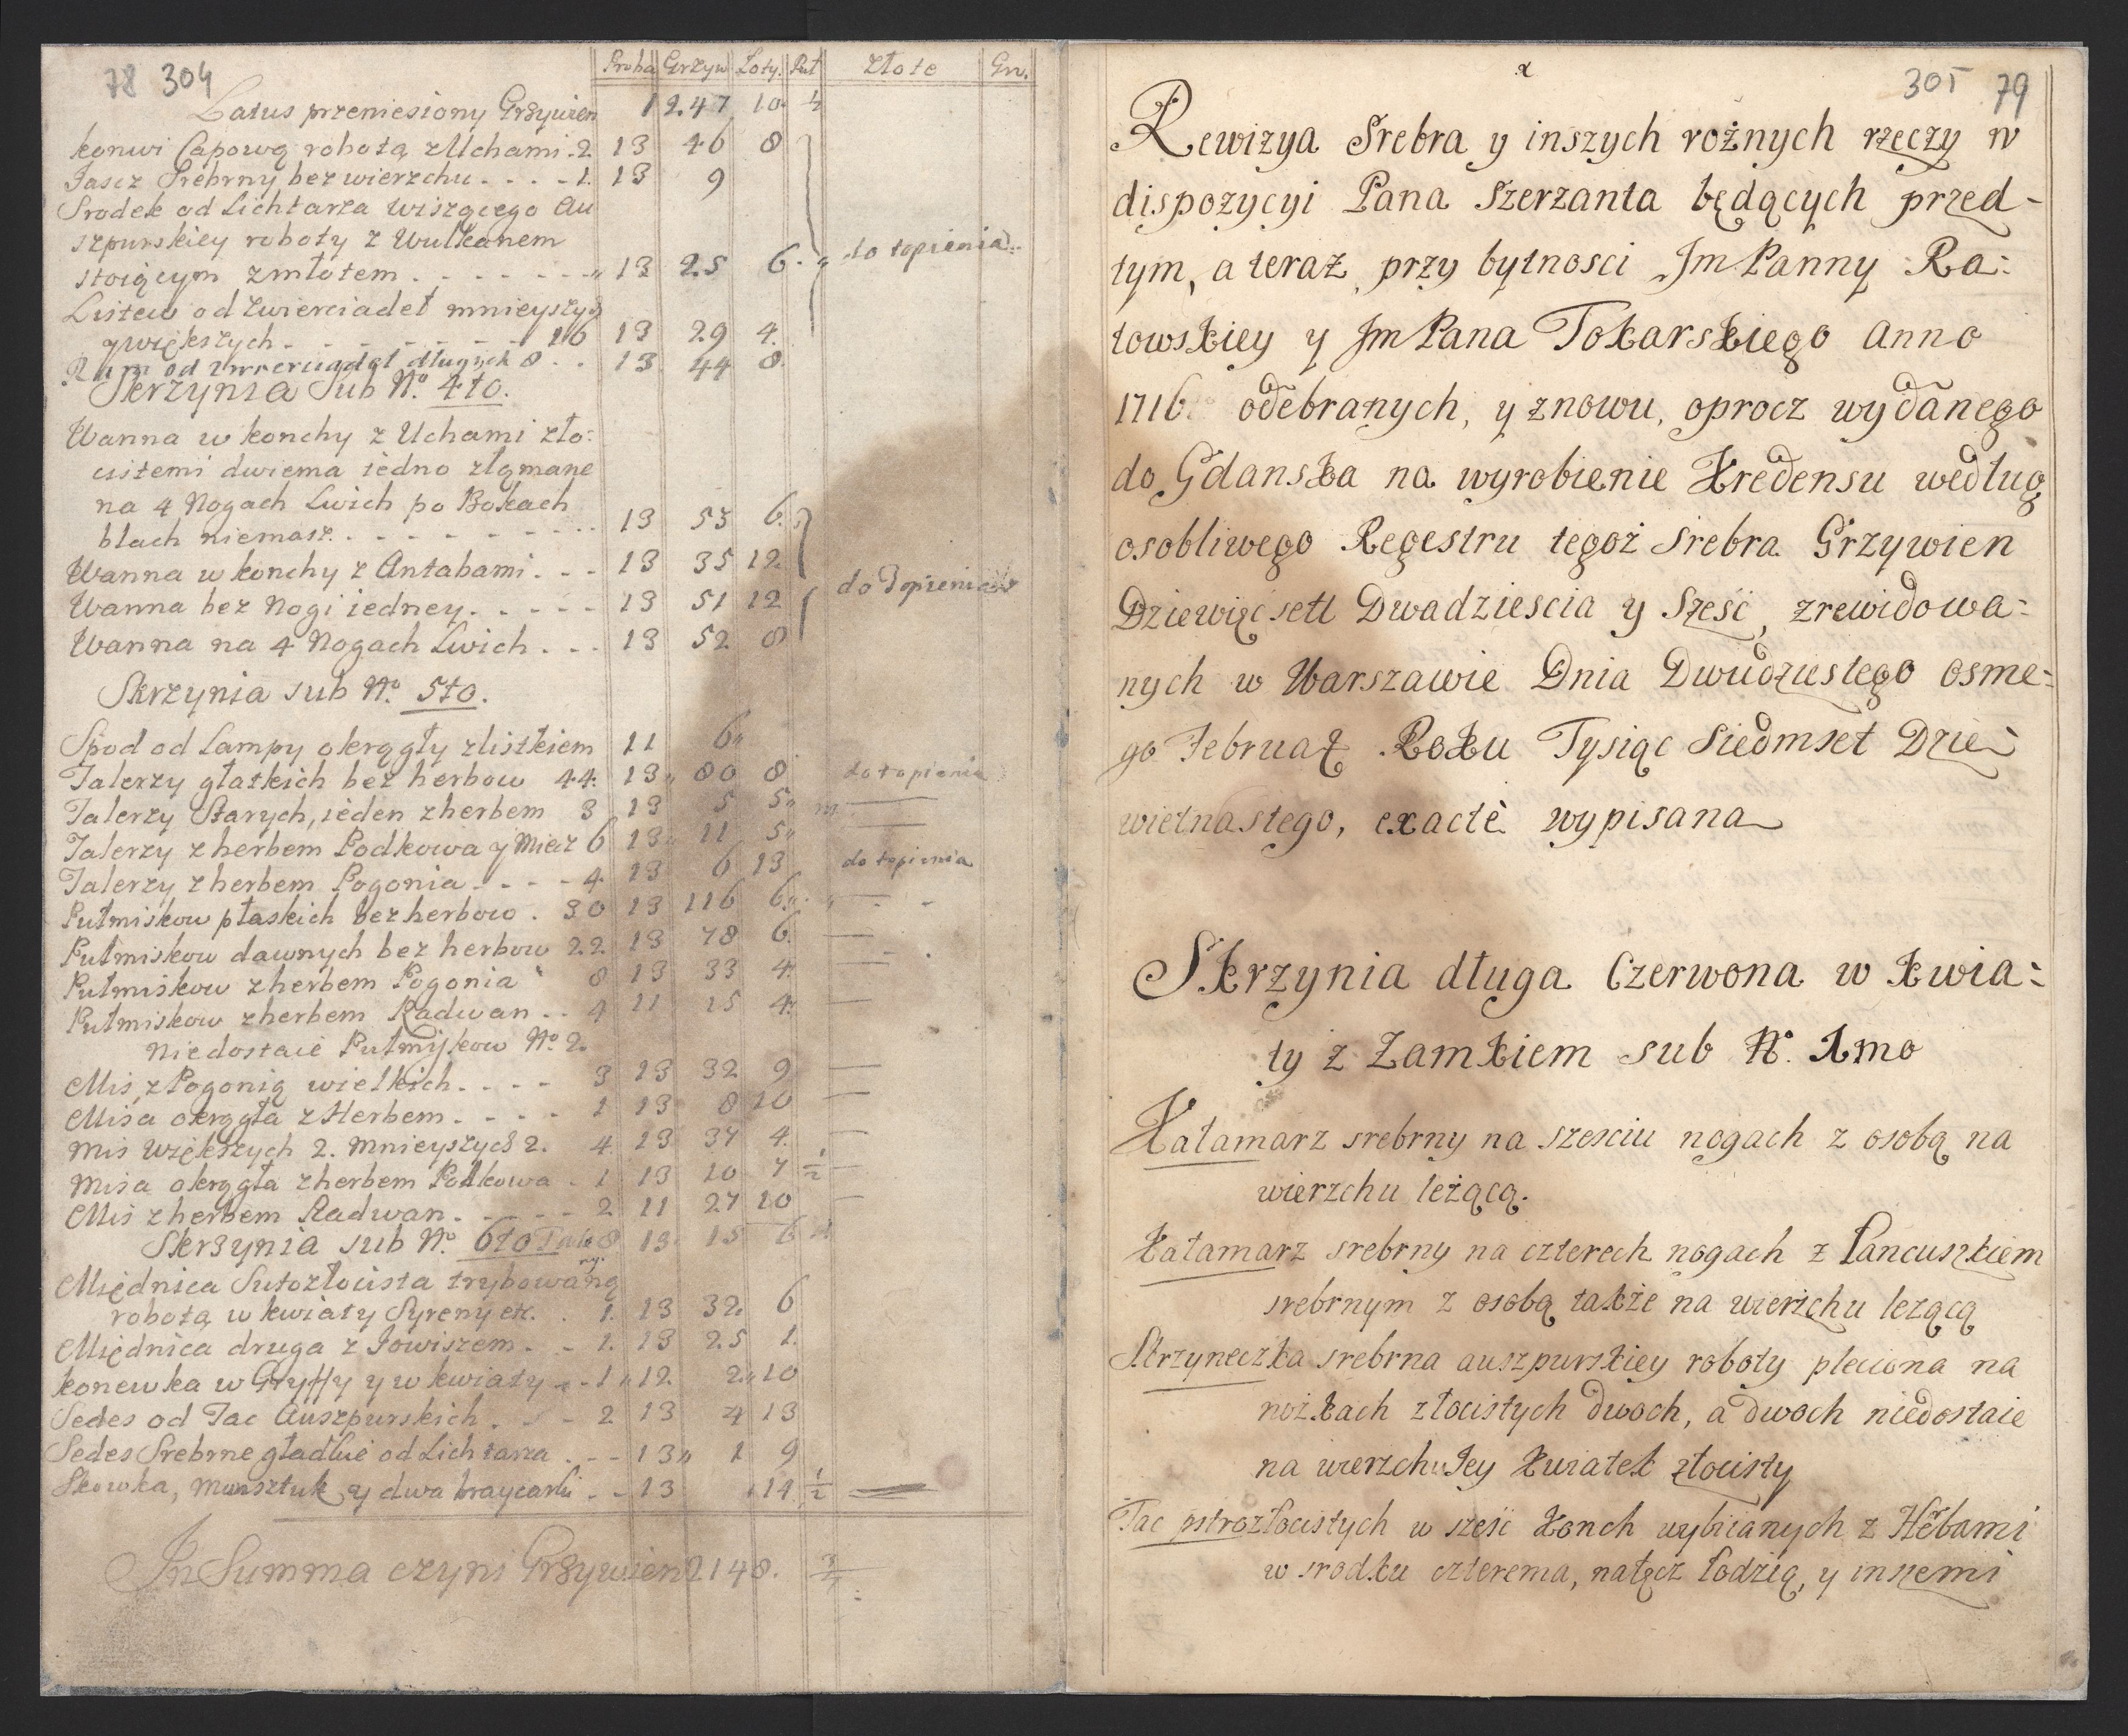 78 304
Proba Grzyw Łoty. Put Złote Gr.
Latus przeniesiony Grzywien 1247 10. ½
konwi Capową robotą z Uchami. 2 13 46 8
Fascz Srebrny bez wierzchu. - - - 1. 13 9
Srodek od Lichtarza wiszącego Au
szpurskiey roboty z Wulkanem
stoiącym z młotem. - - - - - - „ 13 25 6. „ do topienia.
Listew od Zwierciadeł mnieyszych
y większych - - - - - - - 16 13 29 4.
Ram od zwierciadeł długich 8 . . 13 44 8.
Skrzynia Sub No. 4to.
Wanna w konchy z Uchami zło:
cistemi dwiema iedno złąmane
na 4 Nogach Lwich po Bokach
blach niemasz. - - - - - - - 13 53 6.
Wanna w konchy z Antabami. - - 13 35 12.
do Topienia
Wanna bez Nogi iedney. - - - - 13 51 12
Wanna na 4 Nogach Lwich . - . 13 52 8
Skrzynia sub No. 5to.
Spod od Lampy okrągły z listkiem 11 6„
Talerzy głatkich bez herbow 44. 13„ 80 8 do topienia
Talerzy Starych, ieden z herbem 3 13 5 5„
Talerzy z herbem Podkowa y Miecz 6 13„ 11 5„
Talerzy z herbem Pogonia - - - - 4. 13 6 13 do topienia
Putmiskow płaskich bez herbow . 30 13 116 6„
Putmiskow dawnych bez herbow 22 13 78 6.
Putmiskow z herbem Pogonia 8 13 33 4.
Putmiskow z herbem Radwan . . 4 11 15 4.
Niedostaie Putmiskow No. 2.
Mis, z Pogonią wielkich. - - - - 3 13 32 9
Misa okrągła z Herbem. - - - - 1 13 8 10
Mis Większych 2. Mnieyszych 2. 4. 13 37 4.
Misa okrągła z herbem Podkowa . 1 13 10 7 ½
Mis z herbem Radwan. - - - - - 2 11 27 10
Skrzynia sub No. 6to 8 13 15 6
Międnica Sutozłocista trybowaną
robotą w kwiaty Syreny etc. . 1. 13 32. 6
Międnica druga z Jowiszem. - - 1. 13 25 1.
konewka w Gryffy y w kwiaty - - 1 „ 12. 2„ 10
Sedes od Tac Auszpurskich. - - - 2 13 4 13
Sedes Srebrne gładkie od Lichtarza . - - 13„ 1 9
Skowka, Munsztuk, y dwa kraycarki . - 13 14 ½
In Summa czyni Grzywien 2148.
305 79
Rewizya Srebra y inszych rożnych rzeczy w
dispozycyi Pana Szerzanta będących przed-
tym, a teraz, przy bytnosci Jm Panny Ra:
towskiey y Jm Pana Tokarskiego Anno
1716. odebranych, y znowu, oprocz wydanego
do Gdanska na wyrobienie Kredensu według
osobliwego Regestru tegoż Srebra Grzywien
Dziewięć sett Dwadziescia y Sześć, zrewidowa:
nych w Warszawie Dnia Dwudziestego osme:
go Februarÿ Roku Tysiąc Siedmset Dzie:
wietnastego, exactè wypisana
Skrzynia długa Czerwona w kwia:
ty z Zamkiem sub No. 1mo
Kałamarz srebrny na szesciu nogach z osobą na
wierzchu leżącą.
Kałamarz srebrny na czterech nogach z Łancuszkiem
srebrnym z osobą także na wierzchu leżącą
Skrzyneczka srebrna auszpurskiey roboty pleciona na
nożkach złocistych dwoch, a dwoch niedostaie
na wierzchu Jey Kwiatek złocisty
Tac pstrozłocistych w sześć konch wybicanych z Herbami
w srodku czterema, nałęcz Łodzią, y inszemi